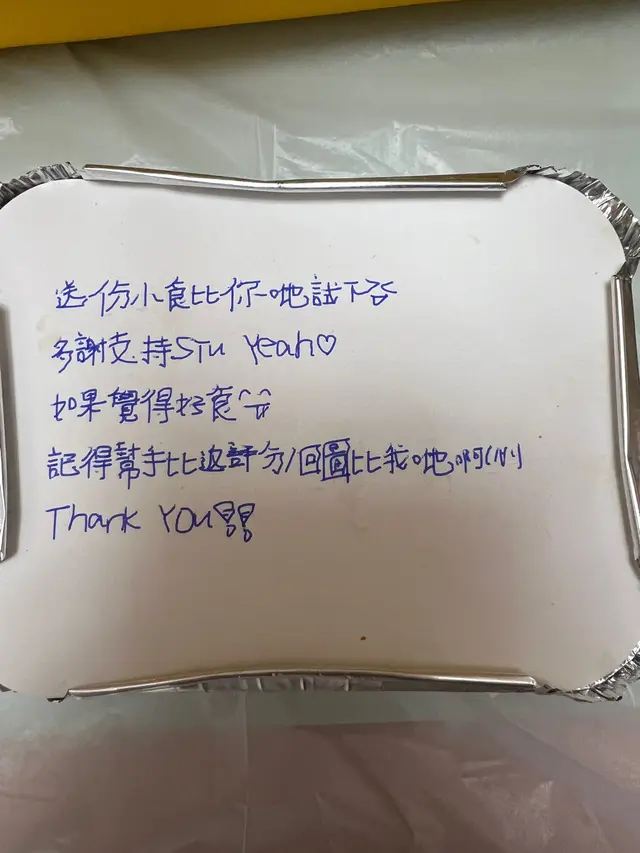 送份小食比你哋試下呀
多謝支持STU Yeah♡
如果覺得好食^^
記得幫手比返評分/回圖比我哋啊
Thank You!!